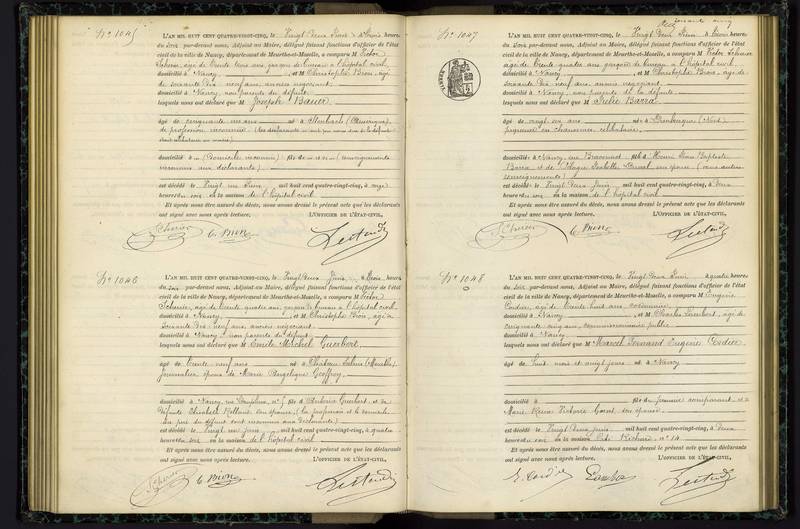 No 1045
L'AN MIL HUIT CENT QUATRE-VINGT-CINQ, le Vingt Deux Juin à trois heures
du soir par-devant nous, Adjoint au Maire, délégué faisant fonctions d'officier de l'état
civil de la ville de Nancy, département de Meurthe-et-Moselle, a comparu M Victor
Scherier, âgé de trente quatre ans, garçon de bureau à l'hôpital civil,
domicilié à Nancy, et M Christophe Brion, âgé
de soixante dix neuf ans, ancien négociant,
domicilié à Nancy, non parents du défunt
lesquels nous ont déclaré que M Joseph Bauer
âgé de cinquante un ans né à Steinbach (Auvergne)
de profession inconnue
domicilié à (Domicile inconnu) fils de et de (renseignements
inconnus aux déclarants)
est décédé le Vingt un Juin, mil huit cent quatre-vingt-cinq, à onze
heures du soir en la maison de l'hôpital civil
Et après nous être assuré du décès, nous avons dressé le présent acte que les déclarants
ont signé avec nous après lecture. L'OFFICIER DE L'ÉTAT-CIVIL,
C. Brion
No 1046
L'AN MIL HUIT CENT QUATRE-VINGT-CINQ, le Vingt Deux Juin, à trois heures
du soir par-devant nous, Adjoint au Maire, délégué faisant fonctions d'officier de l'état
civil de la ville de Nancy, département de Meurthe-et-Moselle, a comparu M Victor
Scherier, âgé de trente quatre ans, garçon de bureau à l'hôpital civil
domicilié à Nancy, et M Christophe Brion, âgé de
soixante dix neuf ans, ancien négociant
domicilié à Nancy, non parents du défunt
lesquels nous ont déclaré que M Emile Michel Guerbert
âgé de trente neuf ans né à Château Salins (Meurthe)
journalier époux de Marie Angélique Geoffroy
domicilié à Nancy, rue no 5 fils d'Antoine Guerbert, et de
défunte Elisabeth Rolland son épouse, (la profession et le domicile
du père du défunt sont inconnus aux déclarants)
est décédé le Vingt un juin, mil huit cent quatre-vingt-cinq, à quatre
heures du soir en la maison de l'hôpital civil
Et après nous être assuré du décès, nous avons dressé le présent acte que les déclarants
ont signé avec nous après lecture. L'OFFICIER DE L'ÉTAT-CIVIL,
C. Brion
No 1047
L'AN MIL HUIT CENT QUATRE-VINGT-CINQ, le Vingt Deux Juin à trois heures
du soir par-devant nous, Adjoint au Maire, délégué faisant fonctions d'officier de l'état
civil de la ville de Nancy, département de Meurthe-et-Moselle, a comparu M Victor Scherier
âgé de trente quatre ans garçon de bureau à l'hôpital civil,
domicilié à Nancy, et M Christophe Brion, âgé de
soixante dix neuf ans, ancien négociant,
domicilié à Nancy, non parents de la défunte
lesquels nous ont déclaré que M Julie Barra
âgé de vingt un ans né à Dunkerque (Nord)
piqueuse en chaussures célibataire
domicilié à Nancy, rue Braconnot fille de Henri Jean Baptiste
Barra et de Isabelle son épouse (sans autres
renseignements)
est décédé le Vingt Deux juin, mil huit cent quatre-vingt-cinq, à deux
heures du soir en la maison de l'hôpital civil
Et après nous être assuré du décès, nous avons dressé le présent acte que les déclarants
ont signé avec nous après lecture. L'OFFICIER DE L'ÉTAT-CIVIL,
C. Brion
No 1048
L'AN MIL HUIT CENT QUATRE-VINGT-CINQ, le Vingt Deux Juin à quatre heures
du soir par-devant nous, Adjoint au Maire, délégué faisant fonctions d'officier de l'état
civil de la ville de Nancy, département de Meurthe-et-Moselle, a comparu M Eugène
Cordier, âgé de trente huit ans
domicilié à Nancy, et M Charles Lambert, âgé de
cinquante cinq ans, commissionnaire public
domicilié à Nancy
lesquels nous ont déclaré que M Marcel Fernand Eugène Cordier
âgé de huit mois et vingt jours né à Nancy
domicilié à fils du premier comparant, et de
Marie Victorie son épouse
est décédé le Vingt Deux juin, mil huit cent quatre-vingt-cinq, à deux
heures du soir en la maison no 14
Et après nous être assuré du décès, nous avons dressé le présent acte que les déclarants
ont signé avec nous après lecture. L'OFFICIER DE L'ÉTAT-CIVIL,
E. Cordier